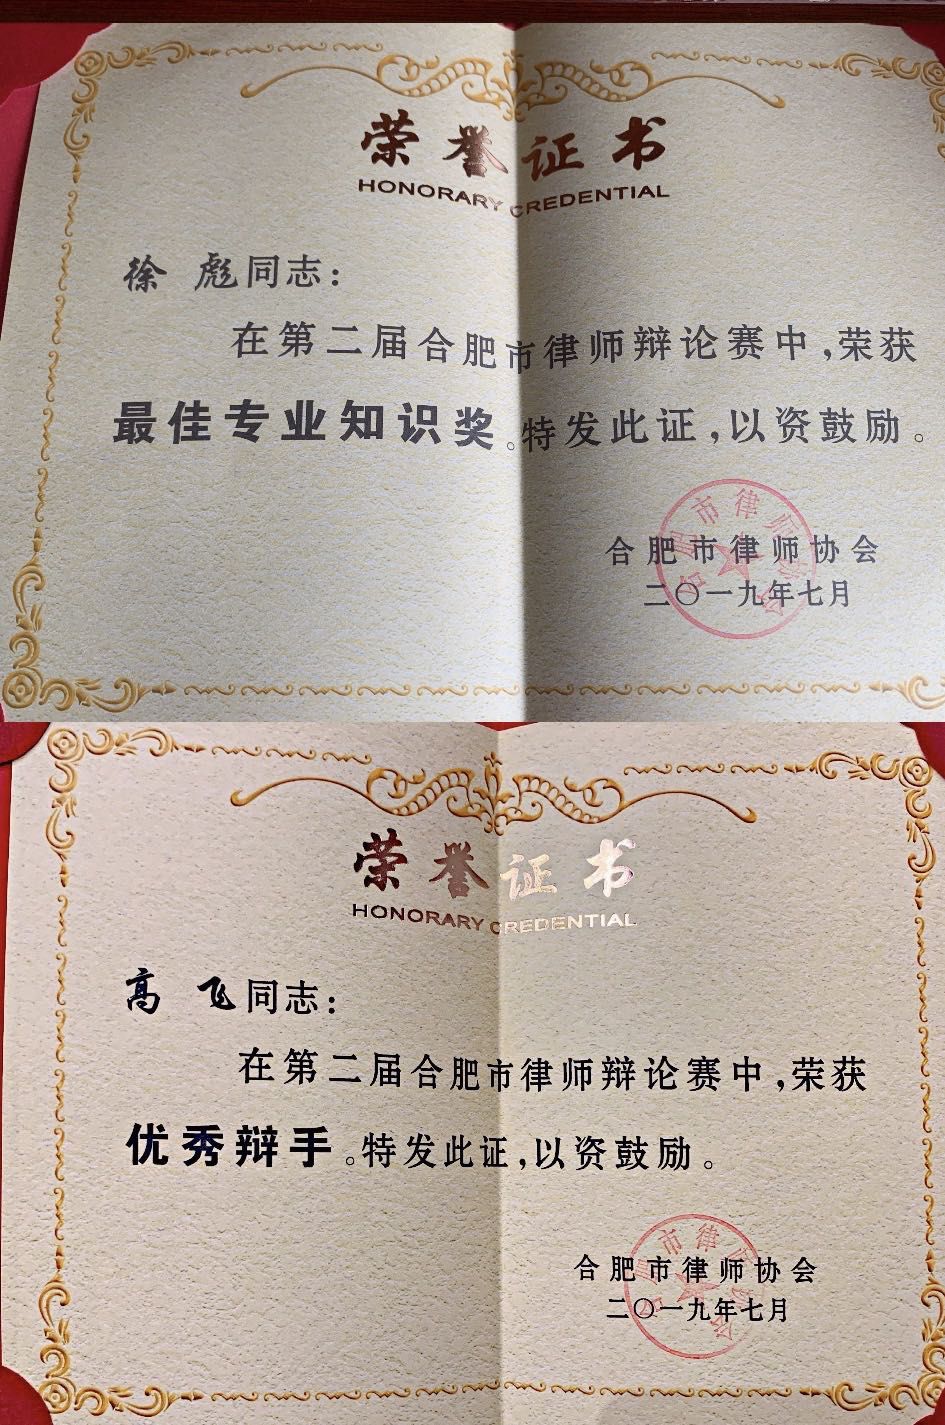 荣誉证书
HONORARY CREDENTIAL
徐 彪同志：
在第二届合肥市律师辩论赛中，荣获
最佳专业知识奖。特发此证，以资鼓励。
合肥市律师协会
二〇一九年七月
荣誉证书
HONORARY CREDENTIAL
高 飞同志：
在第二届合肥市律师辩论赛中，荣获
优秀辩手。特发此证，以资鼓励。
合肥市律师协会
二〇一九年七月